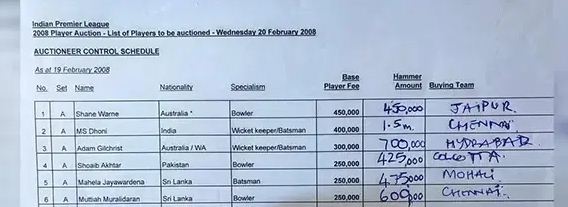 Indian Premier League
2008 Player Auction - List of Players to be auctioned - Wednesday 20 February 2008
AUCTIONEER CONTROL SCHEDULE
As at 19 February 2008
No. Set Name Nationality Specialism Base Player Fee Hammer Amount Buying Team
1 A Shane Warne Australia * Bowler 450,000 450,000 JAIPUR.
2 A MS Dhoni India Wicket keeper/Batsman 400,000 1.5m. CHENNAI
3 A Adam Gilchrist Australia / WA Wicket keeper/Batsman 300,000 700,000 HYDRABAD.
4 A Shoaib Akhtar Pakistan Bowler 250,000 425,000
5 A Mahela Jayawardena Sri Lanka Batsman 250,000 475,000 MOHALI
6 A Muttiah Muralidaran Sri Lanka Bowler 250,000 600,000 CHENNAI.